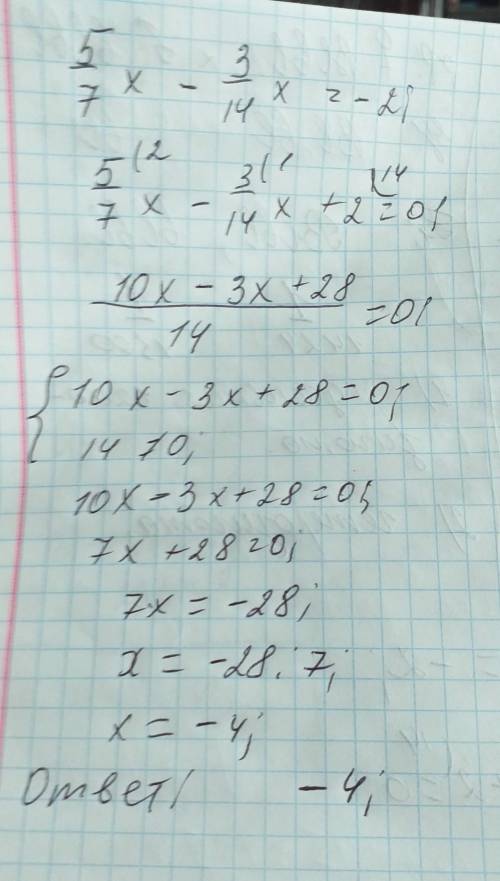 5/7 x - 3/14 x = -2;
5/7 (2 x - 3/14 (1 x + 2 (14 = 0;
10x - 3x + 28 / 14 = 0;
{ 10x - 3x + 28 = 0;
14 ≠ 0;
10x - 3x + 28 = 0;
7x + 28 = 0;
7x = -28;
x = -28 : 7;
x = -4;
Ответ: -4;